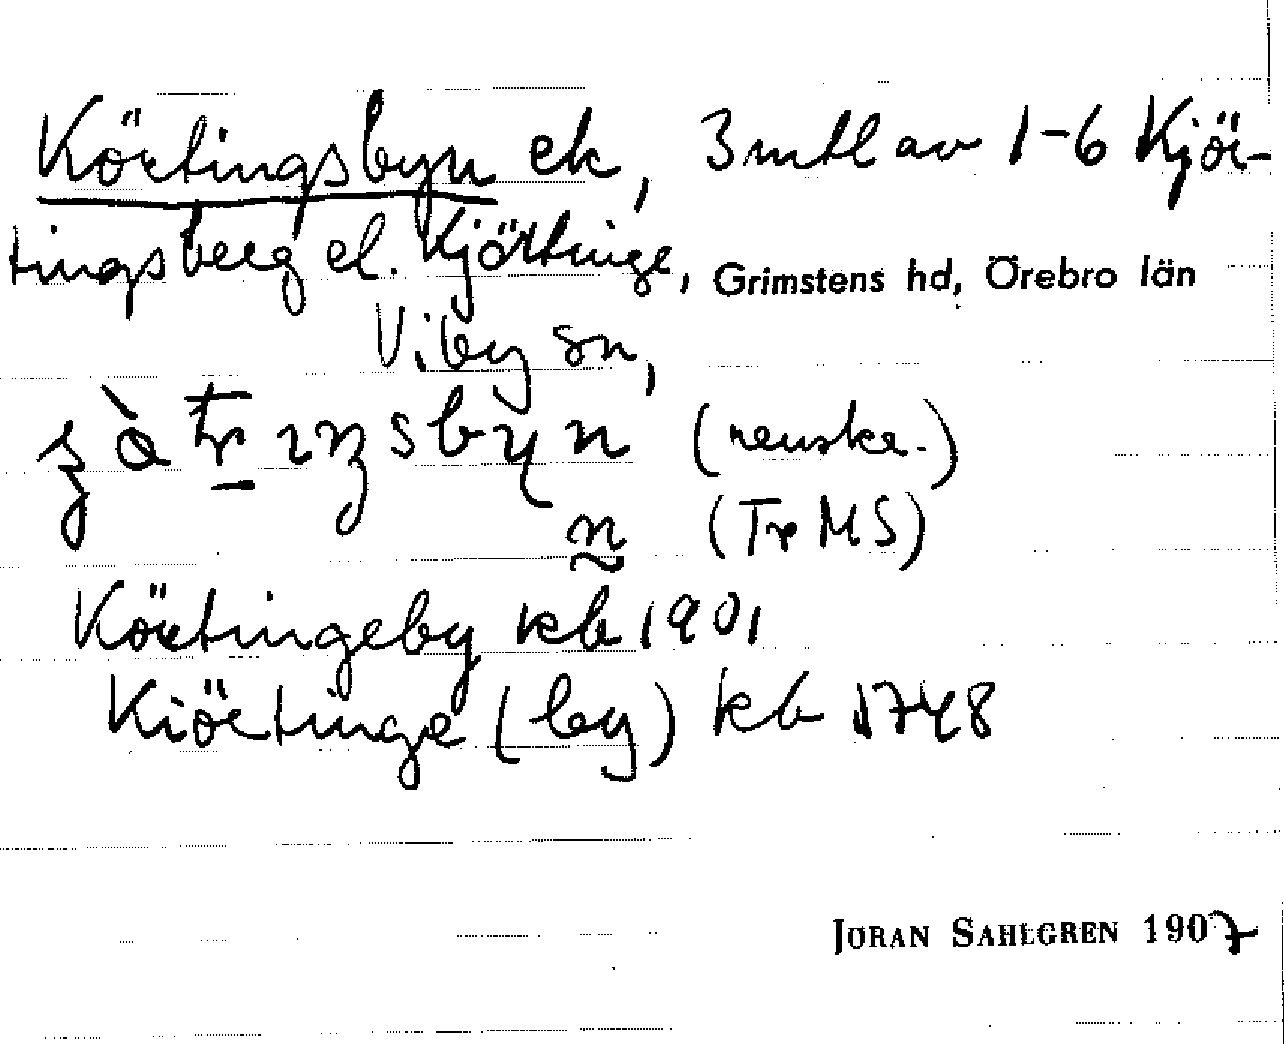 Körtingsbyn ek, 3 mtl av 1-6 Kjör-
tingsberg el. Kjörtinge, Grimstens hd, Örebro län
Viby sn,
(renskr.)
n (Tr MS)
Körtingeby kb 1901
Kiörtinge (by) kb 1748
JÖRAN SAHLGREN 1907